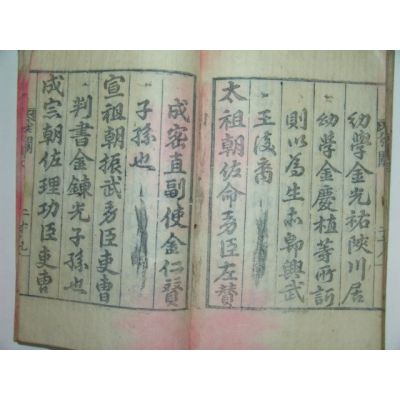 幼學金光祐陜川居
幼學金慶植等所訴
則以爲生等卽興武
王後裔
太祖朝佐命功臣左贊
成密直副使金仁贊
子孫也
宣祖朝振武功臣吏曹
判書金鍊光子孫也
成宗朝佐理功臣吏曹
二十九